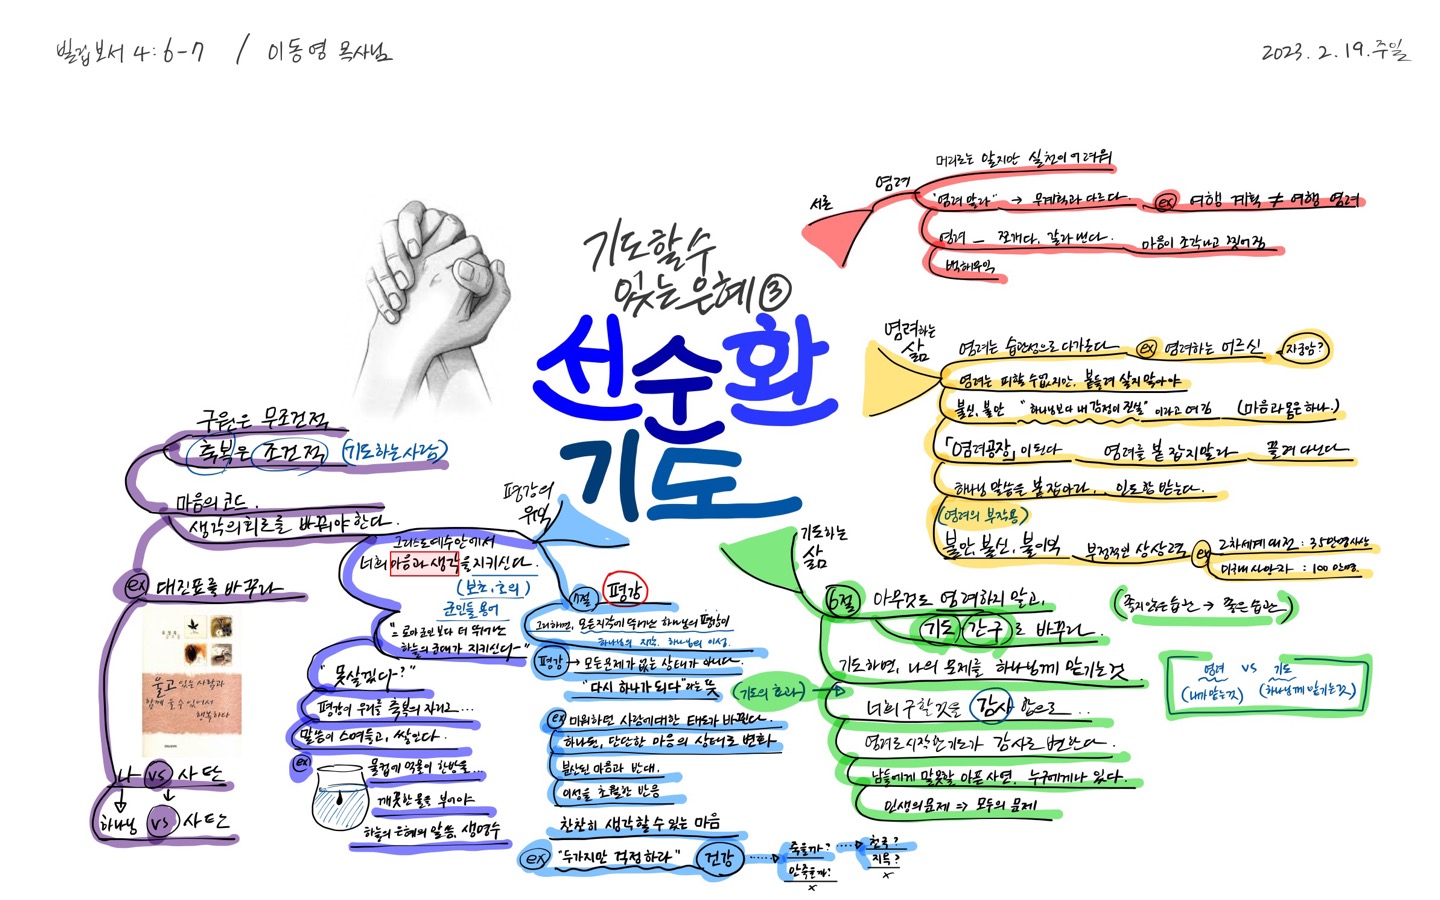 빌립보서 4:6-7 / 이동영 목사님
2023. 2. 19. 주일
기도할 수
있는 은혜 ③
선순환
기도
서론
염려
머리로는 알지만 실천이 어려워
"염려 말라" → 무계획과 다르다.
ex 여행 계획 ≠ 여행 염려
염려 — 쪼개다, 갈라낸다.
마음이 조각나고 찢어짐
백해무익
염려하는
삶
염려는 습관성으로 다가온다
ex 염려하는 어르신
자궁암?
염려는 피할 수 없지만, 붙들려 살지 말아야
불신, 불안 "하나님보다 내 감정이 진실" 이라고 여김 (마음과 몸은 하나.)
「염려공장」이 된다
염려를 붙잡지말라
끌려 다닌다
하나님 말씀을 붙잡아라, 인도함 받는다.
(염려의 부작용)
불안, 불신, 불이익
부정적인 상상력
ex 2차세계대전 : 35만명사상
미국내 사망자 : 100만명
기도하는
삶
6절 아무것도 염려하지 말고,
기도·간구로 바꾸라.
(좋지않은 습관 → 좋은 습관)
기도하면, 나의 문제를 하나님께 맡기는 것
염려 vs 기도
(내가 맡는 것) (하나님께 맡기는 것)
(기도의 효과) →
너희 구할것을 감사함으로...
염려로 시작한 기도가 감사로 변한다.
남들에게 말못할 아픈 사연, 누구에게나 있다.
인생의 문제 => 모두의 문제
평강의
유익
7절 평강
그리하면, 모든지각에 뛰어난 하나님의 평강이
하나님의 지각, 하나님의 이성.
평강 → 모든문제가 없는 상태가 아니다.
"다시 하나가 되다"라는 뜻
ex 미워하던 사람에대한 태도가 바뀐다.
하나된, 단단한 마음의 상태로 변화
분산된 마음과 반대.
이성을 초월한 반응
찬찬히 생각할 수 있는 마음
ex "두가지만 걱정하라" 건강
죽을까?
안죽을까?
x
천국?
지옥?
x
그리스도 예수안에서
너희 마음과 생각을 지키신다.
(보초, 호위)
군인들 용어
"= 로마군인보다 더 뛰어난
하늘의 군대가 지키신다~"
"못살겠다~?"
평강이 우리를 축복의 자리로...
말씀이 스며들고, 쌓인다.
ex 물컵에 먹물이 한방울...
깨끗한 물을 부어야
하늘의 은혜의 말씀, 생명수
구원은 무조건적
축복은 조건적 (기도하는 사람)
마음의 코드.
생각의 회로를 바꿔야 한다.
ex 대진표를 바꾸라
울고 있는 사람과
함께 울 수 있어서
행복하다
나 vs 사탄
하나님 vs 사탄